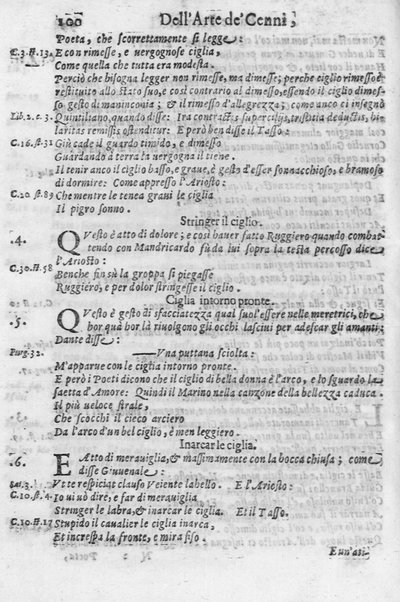 100 Dell'Arte de' Cenni,
Poeta, che scorrettamente si legge:
C.3.st.13. E con rimesse, e vergognose ciglia,
Come quella che tutta era modesta.
Perciò che bisogna legger non rimesse, ma dimesse; perche ciglio rimesso è
restituito allo stato suo, e così contrario al dimesso, essendo il ciglio dimes-
so gesto di maninconia; & il rimesso d'allegrezza; come anco ci insegnò
Lib.2.c.3. Quintiliano, quando disse: Ira contractis supercilijs, tristitia deductis, hi-
laritas remissis ostenditur: E però ben disse il Tasso:
C.16.st.31 Giù cade il guardo timido, e dimesso
Guardando a terra la vergogna il tiene.
Il tener anco il ciglio basso, e graue, è gesto d'esser sonnacchioso, e bramoso
di dormire: Come appresso l'Ariosto:
C.20.st.89 Che mentre le tenea grani le ciglia
Il pigro sonno.
Stringer il ciglio.
.4. QVesto è atto di dolore; e così hauer fatto Ruggiero quando combat-
tendo con Mandricardo fù da lui sopra la testa percosso dice
l'Ariosto:
C.30.st.58 Benche fin sù la groppa si piegasse
Ruggiero, e per dolor stringesse il ciglio.
Ciglia intorno pronte.
.5. QVesto è gesto di sfacciatezza qual suol'essere nelle meretrici, che
hor quà hor là riuolgono gli occhi lasciui per adescar gli amanti;
Dante disse:
Purg.32. ——Vna puttana sciolta:
M'apparue con le ciglia intorno pronte.
E però i Poeti dicono che il ciglio di bella donna è l'arco, e lo sguardo la
saetta d'Amore: Quindi il Marino nella canzone della bellezza caduca.
Il più veloce strale,
Che scocchi il cieco arciero
Da l'arco d'vn bel ciglio, è men leggiero.
Inarcar le ciglia.
.6. E Atto di merauiglia, & massimamente con la bocca chiusa; come
disse Giuuenale:
Sat.3. Vt te respiciat clauso Veiento labello. E l'Ariosto:
C.10.st.4. Io vi uò dire, e far di merauiglia
Stringer le labra, & inarcar le ciglia. Et il Tasso.
C.10.st.17 Stupido il caualier le ciglia inarca,
Et increspa la fronte, e mira fiso.
E vn'atti-